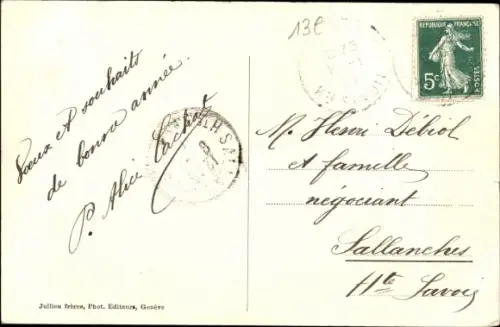 13€
REPUBLIQUE FRANÇAISE
5c
POSTES
Vœux et souhaits
de bonne année.
P. Alice
M. Henri Débiol
et famille
négociant
Sallanches
Hte Savoie
Jullien frères, Phot. Editeurs, Genève